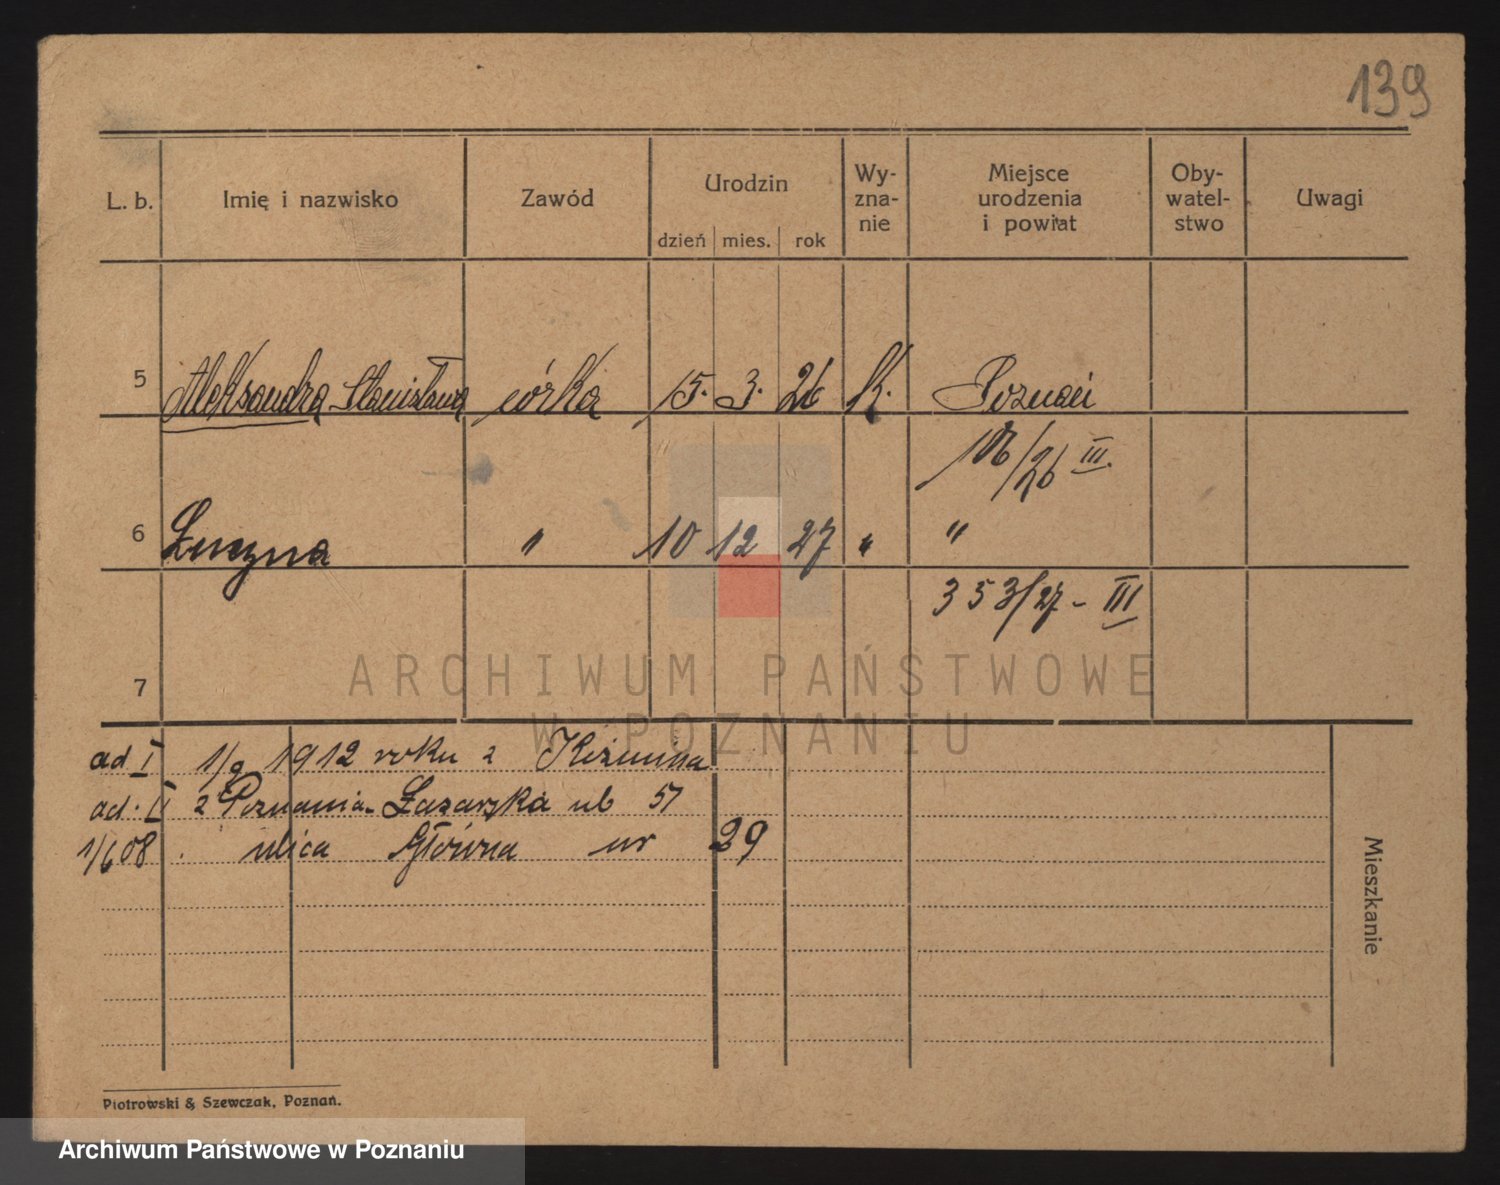 139
L. b. Imię i nazwisko Zawód Urodzin dzień mies. rok Wy- zna- nie Miejsce urodzenia i powiat Oby- watel- stwo Uwagi
5 Aleksandra Stanisława córka 15. 3. 26 K. Poznań
106/26 III.
6 Łucyna " 10 12 27 " "
353/27 - III
7
ARCHIWUM PAŃSTWOWE
W POZNANIU
ad I 1/9 1912 roku z
ad. II z Poznania Łazarska ub 51
1/6 08 ulica Główna nr 29
Mieszkanie
Piotrowski & Szewczak, Poznań.
Archiwum Państwowe w Poznaniu